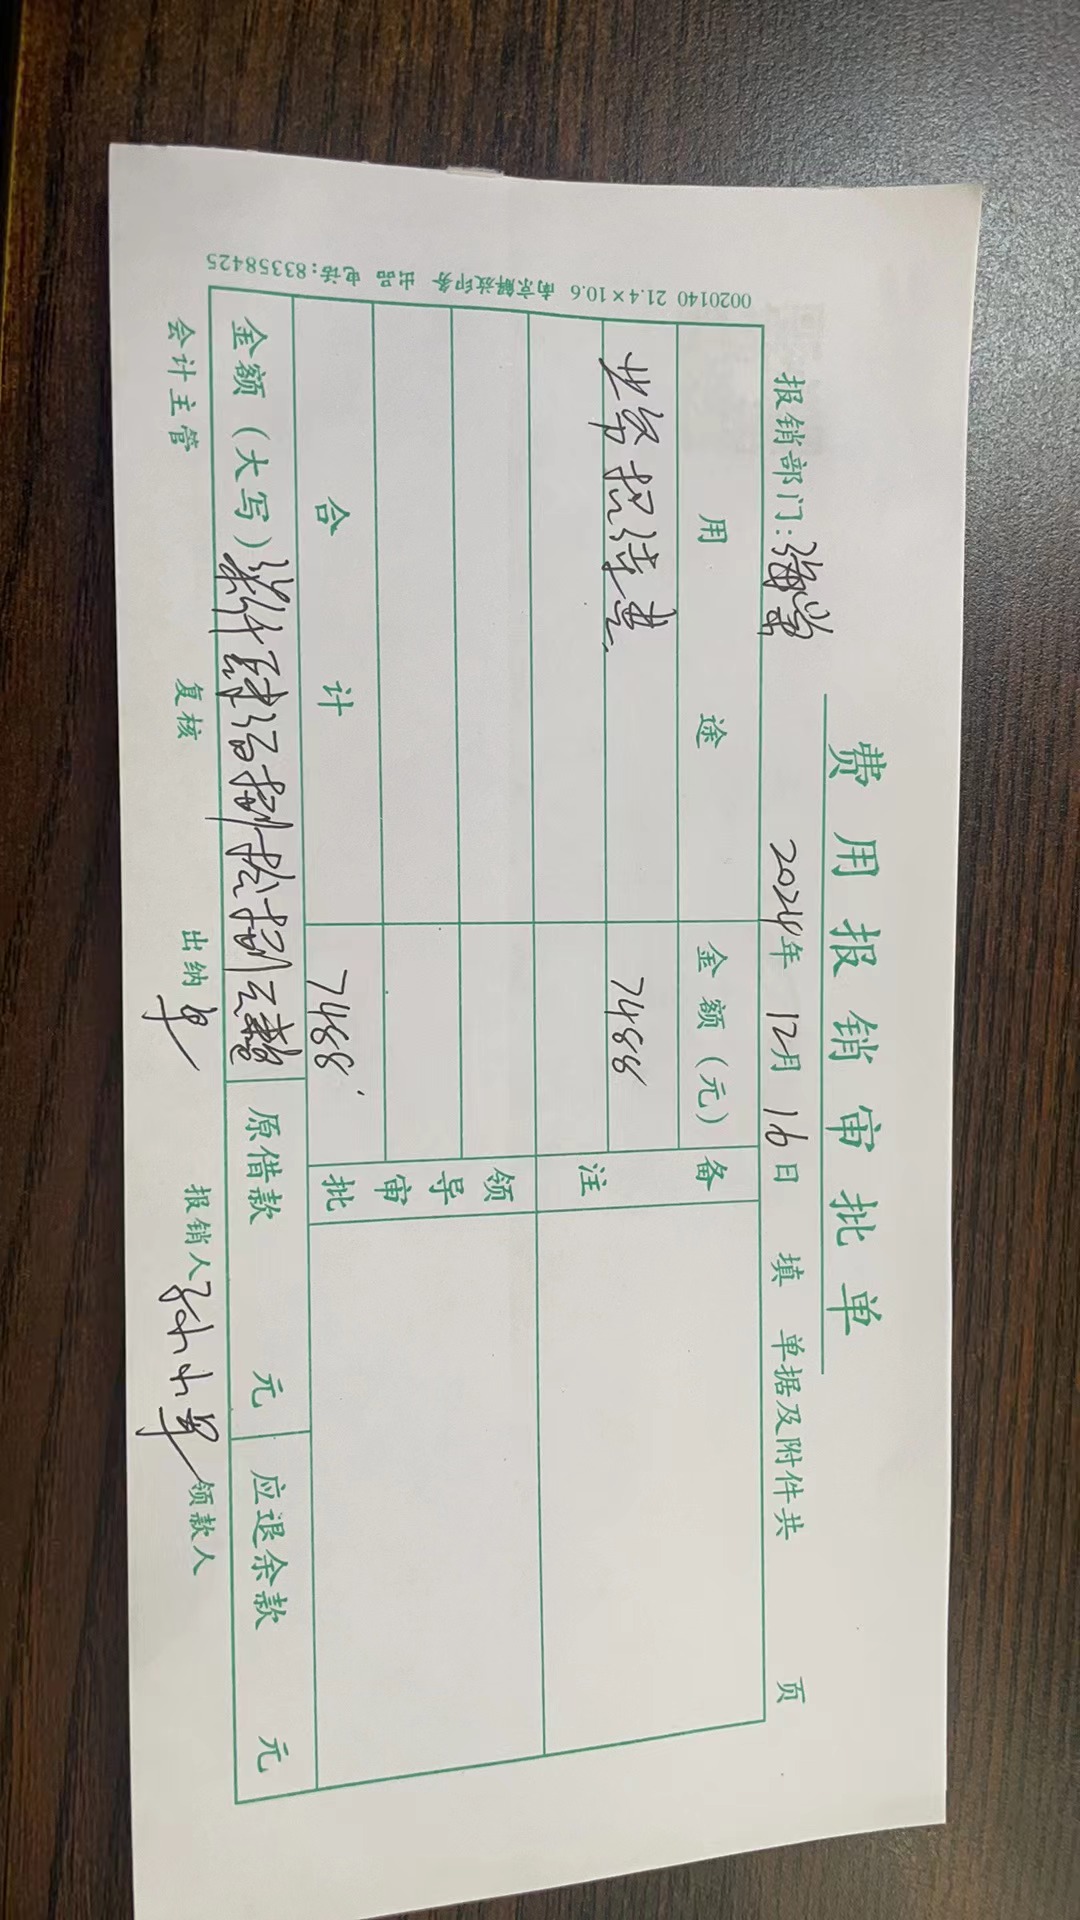 费用报销审批单
报销部门：海棠 2024年 12月 16日 填 单据及附件共 页
用途 金额（元） 备注
业务招待费 7488
领导审批
合计 7488
金额（大写）柒仟肆佰捌拾捌元整 原借款 元 应退余款 元
会计主管 复核 出纳 报销人 领款人
0020140 21.4×10.6 南京解放印务 出品 电话:83358425